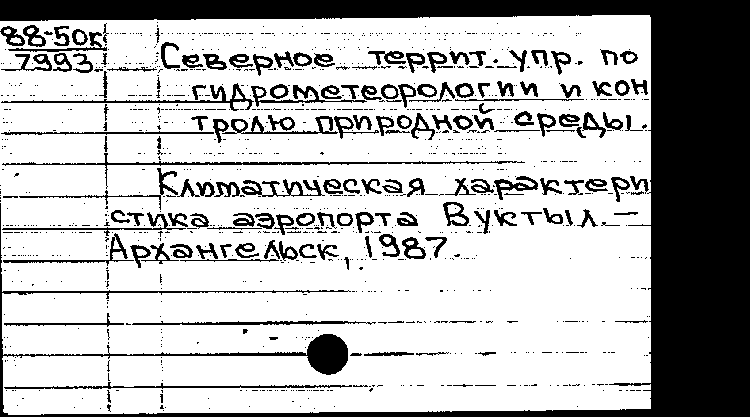 88-50к
7993
Северное террит. упр. по
гидрометеорологии и кон
тролю природной среды.
Климатическая характери
стика аэропорта Вуктыл.—
Архангельск, 1987.